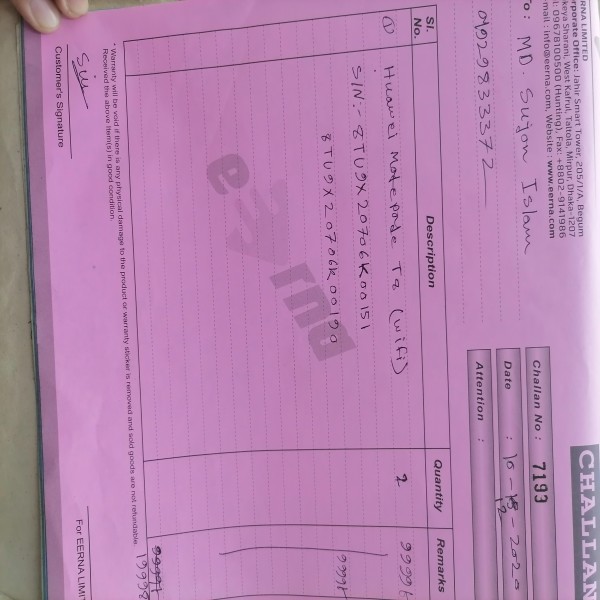 ERNA LIMITED
rporate Office: Jahir Smart Tower, 205/1/A, Begum
keya Sharani, West Kafrul, Taltola, Mirpur, Dhaka-1207
l: 09678100500 (Hunting), Fax: +8802-9141986
mail: info@eerna.com, Website: www.eerna.com
CHALLAN
o: MD. Sujon Islam
Challan No : 7193
Date :
Attention :
Sl. No. Description Quantity Remarks
① Huawei Matepade T8 (wifi) 2
S/N:- 8TU9X20706K00151
8TU9X20706K00190
eerna
* Warranty will be void if there is any physical damage to the product or warranty sticker is removed and sold goods are not refundable.
Received the above item(s) in good condition.
Customer's Signature
For EERNA LIMIT